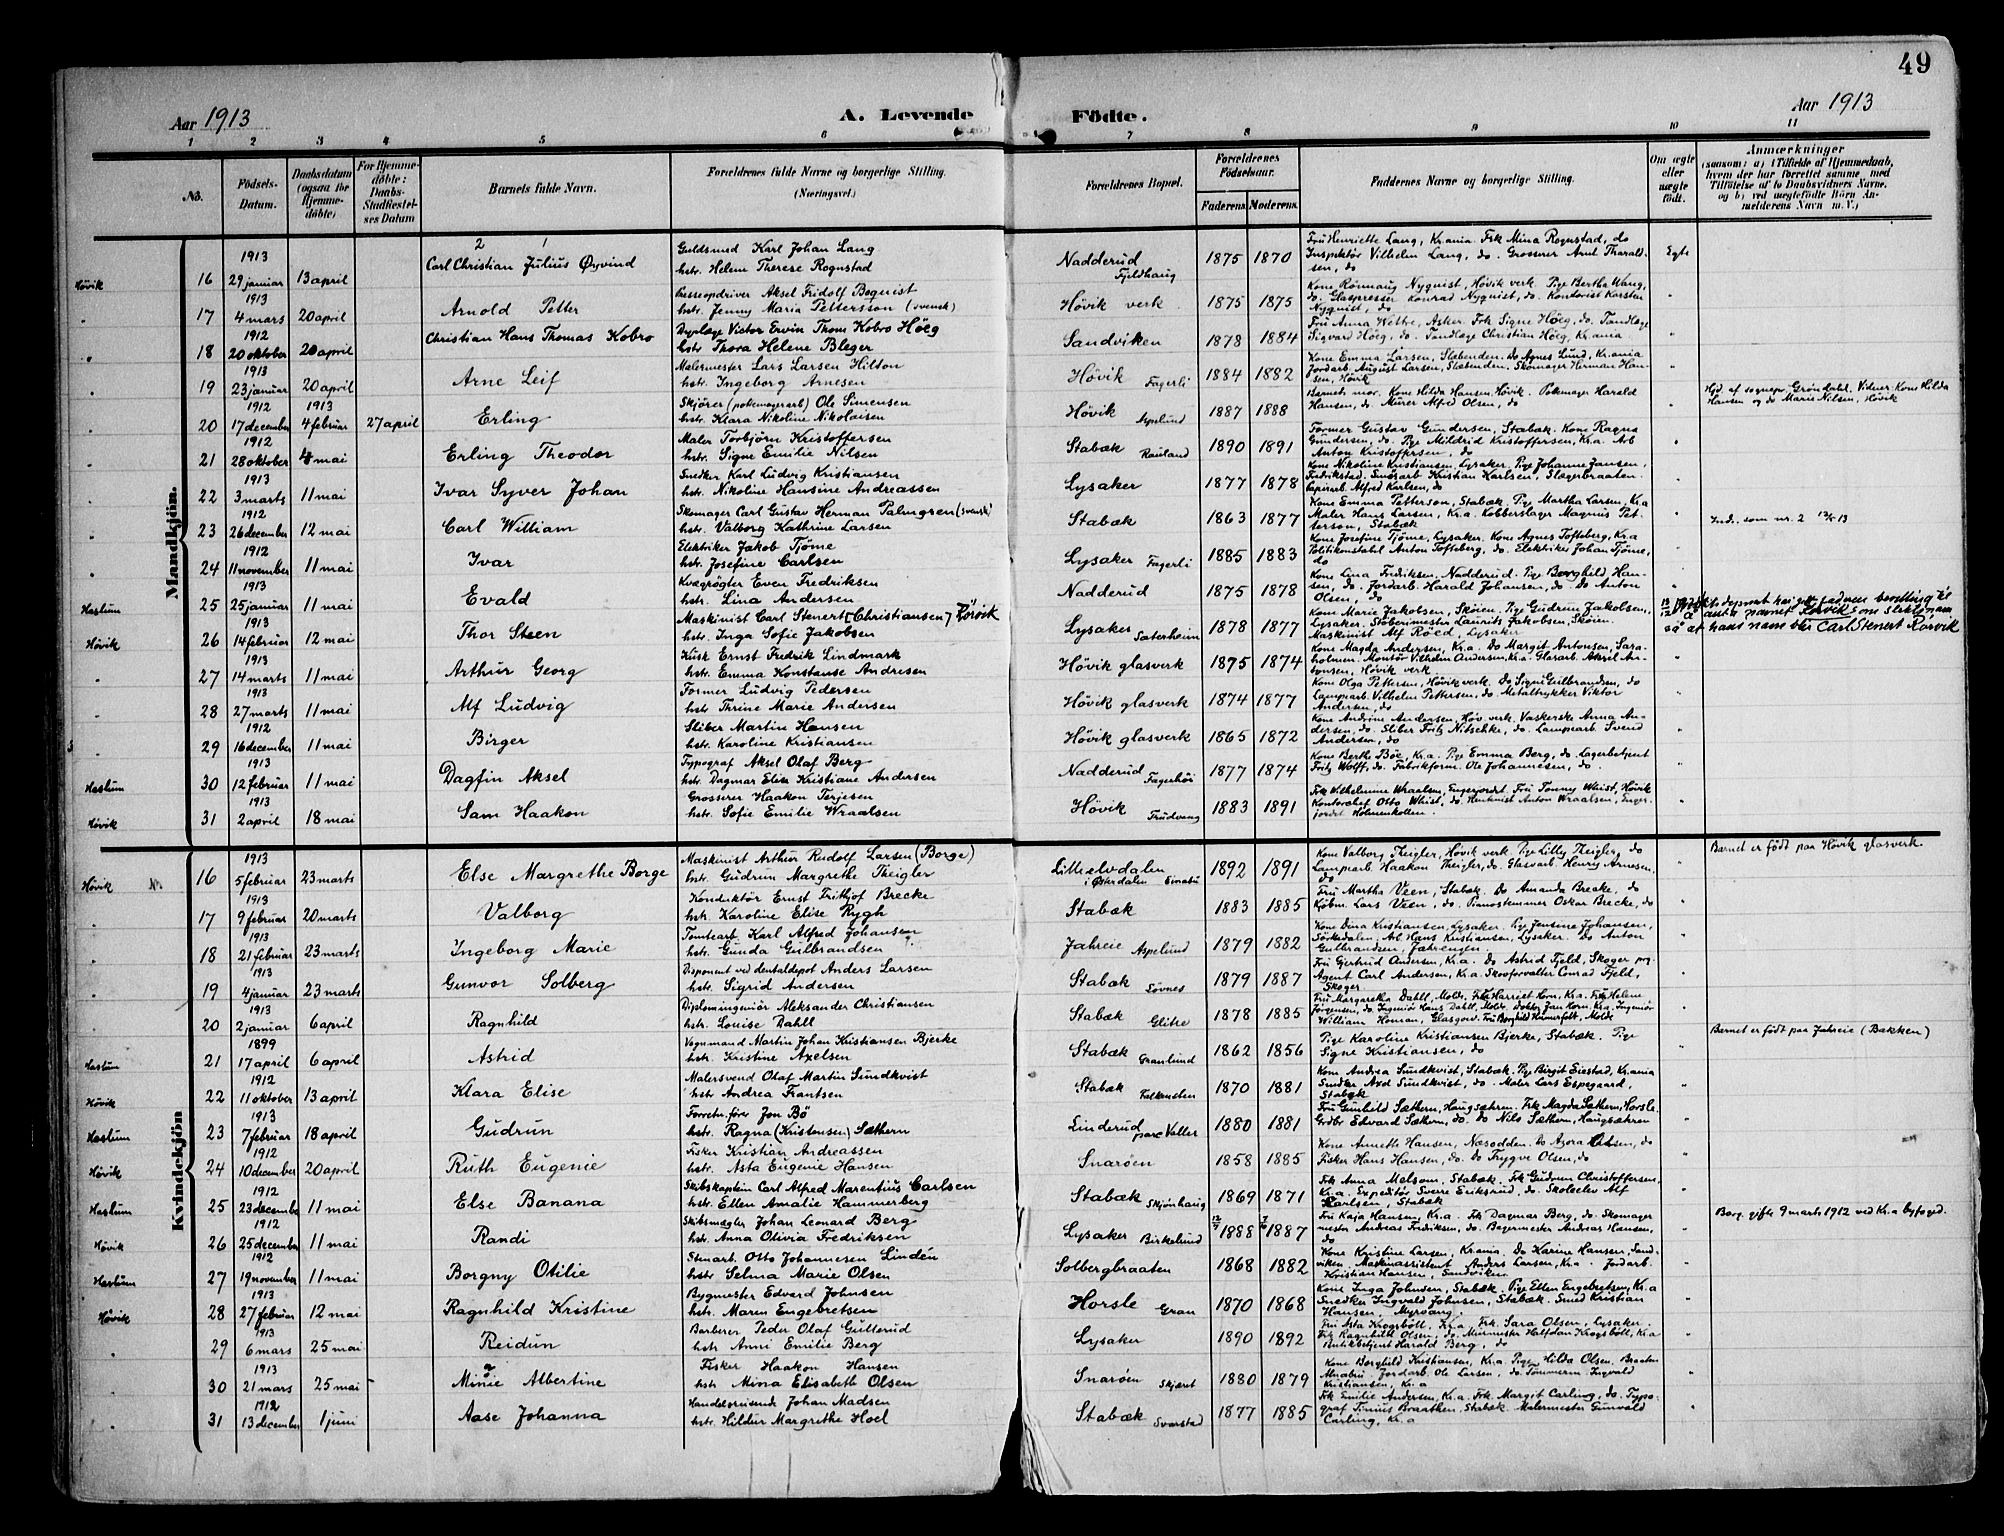 49
Aar 1913 A. Levende Födte. Aar 1913
1 2 3 4 5 6 7 8 9 10 11
No. Födsels-Datum. Daabsdatum (ogsaa for Hjemmedöbte) For Hjemmedöbte: Daabs-Stadfæstelses Datum Barnets fulde Navn. Forældrenes fulde Navne og borgerlige Stilling. (Næringsvei.) Forældrenes Bopæl. Forældrenes Födselsaar. Faderens. Moderens. Faddernes Navne og borgerlige Stilling. Om ægte eller uægte födt. Anmærkninger
Mandkjön.
Hövik 16 1913 29 januar 13 april Carl Christian Julius Øyvind Guldsmed Karl Johan Lang hstr. Helene Therese Rognstad Nadderud Fjeldhaug 1875 1870 Fru Henriette Lang, Kr.ania. Frk Mina Rognstad, do Inspektör Vilhelm Lang, do. Grosserer Arnt Tharaldsen, do Egte
" 17 1913 4 mars 20 april Arnold Petter Aksel Fridolf Boquist hstr. Jenny Maria Pettersson (svensk) Hövik verk 1875 1875 Kone Rönnaug Nyquist, Hövik verk. Pige Bertha Wang, do. Glaspresser Konrad Nyquist, do Kontorist Karsten Nyquist, do "
" 18 1912 20 oktober 20 april Christian Hans Thomas Kobro Dyrlæge Victor Ervin Thom Kobro Höeg hstr Thora Helene Bleger Sandviken 1878 1884 Fru Anna Wettre, Asker. Frk Signe Höeg, do. Tandlæge Sigvard Höeg, do. Tandlæge Christian Höeg, Kr.ania "
" 19 1913 23 januar 20 april Arne Leif Malermester Lars Larsen Hilton hstr. Ingeborg Arnesen Hövik Fagerli 1884 1882 Kone Emma Larsen, Slæbenden. Do Agnes Lund, Kr.ania Jordarb. August Larsen, Slæbenden. Skomager Herman Hansen, Hövik "
" 20 1912 17 december 1913 4 februar 27 april Erling Ole Simensen hstr. Klara Nikoline Nikolaisen Hövik Aspelund 1887 1888 Barnets mor. Kone Hilda Hansen, Hövik. Potkmager Harald Hansen, do. Murer Alfred Olsen, do " Hjd. af sognepr. Gröndahl. Vidner: Kone Hilda Hansen og do Marie Nilsen, Hövik
" 21 1912 28 oktober 4 mai Erling Theodor Maler Torbjörn Kristoffersen hstr. Signe Emilie Nilsen Stabæk Rauland 1890 1891 Former Gustav Gundersen, Stabæk. Kone Ragna Gundersen, do. Pige Mildrid Kristoffersen, Kr.a. Arb Anton Kristoffersen, do "
" 22 1913 3 marts 11 mai Ivar Syver Johan Snedker Karl Ludvig Kristiansen hstr. Nikoline Hansine Andreassen Lysaker 1877 1878 Kone Nikoline Kristiansen, Lysaker. Pige Johanne Jansen, Fredrikstad. Kristian Karlsen, Alfred Karlsen, do "
" 23 1912 26 december 12 mai Carl William Skomager Carl Gustav Herman Palmgren (svensk) hstr. Valborg Kathrine Larsen Stabæk 1863 1877 Kone Emma Petterson, Stabæk. Pige Martha Larsen, Kr.a Maler Hans Larsen, Kr.a. Kobberslager Magnus Petterson, Stabæk " Ind. som nr. 2
" 24 1912 11 november 11 mai Ivar Elektriker Jakob Tjöme hstr. Josefine Carlsen Lysaker Fagerli 1885 1883 Kone Josefine Tjöme, Lysaker. Kone Agnes Tofteberg, Kr.a Politikonstabl Anton Tofteberg, do. Elektriker Johan Tjöme, do "
Haslum 25 1913 25 januar 11 mai Evald Kvægrögter Even Fredriksen hstr. Lina Andersen Nadderud 1875 1878 Kone Lina Fredriksen, Nadderud. Pige Borghild Hansen, do. Jordarb. Harald Johansen, do. Do Anton Olsen, do "
Hövik 26 1913 14 februar 12 mai Thor Steen Maskinist Carl Stenert [Christiansen] Rörvik hstr. Inga Sofie Jakobsen Lysaker Sæterheim 1878 1877 Kone Marie Jakobsen, Sköien. Pige Gudrun Jakobsen, Lysaker. Stöberimester Laurits Jakobsen, Sköien. Maskinist Alf Röed, Lysaker " faderen bevilling til å anta navnet Rørvik som slektsnavn så at hans navn blir Carl Stenert Rørvik
" 27 1913 14 marts 11 mai Arthur Georg Kusk Ernst Fredrik Lindmark hstr. Emma Konstanse Andresen Hövik glasverk 1875 1874 Kone Magda Andersen, Kr.a. Do Margit Antonsen, Saraholmen. Montör Vilhelm Andersen, Kr.a. Glasarb. Hövik verk "
" 28 1913 27 marts 11 mai Alf Ludvig Former Ludvig Pedersen hstr. Thrine Marie Andersen Hövik glasverk 1874 1877 Kone Olga Pettersen, Hövik verk. Do Signe Gulbrandsen, do Lamparb. Vilhelm Pettersen, do. Metaltrykker Viktor Andersen, do "
" 29 1912 16 december 11 mai Birger Sliber Martin Hansen hstr. Karoline Kristiansen Hövik glasverk 1865 1872 Kone Andrine Andersen, Höv. verk. Vaskerske Anna Andersen, do. Sliber Fritz Nitschke, do. Lamparb. Svend Andersen, do "
Haslum 30 1913 12 februar 11 mai Dagfin Aksel Typograf Aksel Olaf Berg hstr. Dagmar Elise Kristiane Andersen Nadderud Fagerhöi 1877 1874 Kone Berthe Böe, Kr.a. Pige Emma Berg, do. Lagerbetjent Fritz Wolff, do. Fabrikform. Ole Johannesen, do. "
Hövik 31 1913 2 april 18 mai Sam Haakon Grosserer Haakon Terjesen hstr. Sofie Emilie Wraalsen Hövik Trudvang 1883 1891 Frk Wilhelmine Wraalsen, Engerjordet. Fru Tonny Whist, Hövik Kontorchef Otto Whist, do. Anton Wraalsen, Engerjordet Holmenkollen. "
Kvindekjön
Hövik 16 1913 5 februar 23 marts Else Margrethe Borge Maskinist Arthur Rudolf Larsen (Borge) hstr. Gudrun Margrethe Theigler Lilleelvdalen i Østerdalen 1892 1891 Kone Valborg Theigler, Hövik verk. Pige Lilly Theigler, do Lamparb. Haakon Theigler, do. Glasvarb. Henry Arnesen, do " Barnet er födt paa Hövik glasverk.
" 17 1913 9 februar 20 marts Valborg Konduktör Ernst Frithjof Brecke hstr. Karoline Elise Rygh Stabæk 1883 1885 Fru Martha Veen, Stabæk. Do Amanda Brecke, do Kjöbm. Lars Veen, do. Pianostemmer Oskar Brecke, do "
" 18 1913 21 februar 23 marts Ingeborg Marie Tomtearb Karl Alfred Johansen hstr. Gunda Gulbrandsen Jahreie Aspelund 1879 1882 Kone Dina Kristiansen, Lysaker. Pige Jensine Johansen, Sörkedalen. Arb. Hans Kristiansen, Lysaker. Do Anton Gulbrandsen, Jahrengen. "
" 19 1913 4 januar 23 marts Gunvor Solberg Disponent ved dentaldepot Anders Larsen hstr. Sigrid Andersen Stabæk Sövnes 1879 1887 Fru Gjertrud Andersen, Kr.a. Do Astrid Fjeld, Skoger prg. Agent Carl Andersen, Kr.a. Skovforvalter Conrad Fjeld, Skoger "
" 20 1913 2 januar 6 april Ragnhild Diplomingeniör Aleksander Christiansen hstr. Louise Dahll Stabæk Glitre 1878 1885 Fru Margaretha Dahll, Molde. Frk Harriet Horn, Kr.a. Frk Helene Jörgensen, do. Ingeniör Hans Dahll, Molde. Doktor Jan Horn, Kr.a. Ingeniör William Homan, Glasgow. Fru Borghild Hamerfelt, Molde "
Haslum 21 1899 17 april 6 april Astrid Vognmand Martin Johan Kristiansen Bjerke hstr. Kristine Axelsen Stabæk Granlund 1862 1856 Pige Karoline Kristiansen Bjerke, Stabæk. Pige Signe Kristiansen, do " Barnet er födt paa Jahreie (Bakken)
Hövik 22 1912 11 oktober 13 april Klara Elise Malersvend Olaf Martin Sundkvist hstr Andrea Frantsen Stabæk Falkensten 1870 1881 Kone Andrea Sundkvist, Stabæk. Pige Birgit Eiestad, Kr.ania Snedker Axel Sundkvist, do. Maler Lars Espegaard, Stabæk "
Haslum 23 1913 7 februar 18 april Gudrun Forretn.förer Jon Bö hstr. Ragna (Kristensen) Sæthern Linderud pare Valler 1880 1881 Fru Gunhild Sæthern, Haugsæhren. Frk Magda Sæthern, Horsle. Grdbr Edvard Sæthern, do. Do Nils Sæthern, Haugsæhren "
Hövik 24 1912 10 december 20 april Ruth Eugenie Fisker Kristian Andreassen hstr. Asta Eugenie Hansen Snaröen 1858 1885 Kone Annette Hansen, Næsodden. Do Azora Olsen, do Fisker Hans Hansen, do. Do Trygve Olsen, do "
Haslum 25 1912 23 december 11 mai Else Banana Skibskaptein Carl Alfred Marentius Carlsen hstr. Ellen Amalie Hammerberg Stabæk Skjönhaug 1869 1871 Frk Anna Melsom, Stabæk. Frk Gudrun Christoffersen, Kr.a. Expeditör Sverre Eriksrud, do. Skoleelev Alf Carlsen, Stabæk "
Hövik 26 1912 25 december 11 mai Randi Skibsmægler Johan Leonard Berg hstr. Anna Olivia Fredriksen Lysaker Birkelund 1888 1887 Fru Kaja Hansen, Kr.a. Frk Dagmar Berg, do. Skomagermester Andreas Fredriksen, do. Bagermester Andreas Hansen, do " Borg. gifte 9 marts 1912 ved Kr.a byfoged.
Haslum 27 1912 19 november 11 mai Borgny Otilie Stenarb. Otto Johannesen Lindén hstr Selma Marie Olsen Solbergbraaten 1868 1882 Kone Kristine Larsen, Kr.ania. Do Karine Hansen, Sandviken. Maskinassistent Anders Larsen, Kr.a. Jordarb. Kristian Hansen, Sandviken "
Hövik 28 1913 27 februar 12 mai Ragnhild Kristine Bygmester Edvard Johnsen hstr. Maren Engebretsen Horsle Gran 1870 1868 Kone Inga Johnsen, Stabæk. Pige Ellen Engebretsen, Kr.a Snedker Ingvald Johnsen, Stabæk. Smed Kristian Hansen, Myrvang. "
" 29 1913 6 mars 25 mai Reidun Barberer Peder Olaf Gulterud hstr Anni Emilie Berg Lysaker 1890 1892 Fru Asta Krogsböll, Kr.a. Frk. Sara Olsen, Lysaker. Frk Ragnhild Olsen, do. Murmester Halfdan Krogsböll, Kr.a Butikbetjent Harald Berg, do "
" 30 1913 21 mars 25 mai Minie Albertine Fisker Haakon Hansen hstr Mina Elisabeth Olsen Snaröen Skjæret 1880 1879 Kone Borghild Kristiansen, Kr.a. Pige Hilda Olsen, Braaten Alnabru. Jordarb. Ole Larsen, do. Tömmerm. Ingvald Kristiansen, Kr.a "
" 31 1912 13 december 1 juni Aase Johanna Handelsreisende Johan Madsen hstr. Hildur Margrethe Hoel Stabæk Svarstad 1877 1885 Frk Emilie Andersen, Kr.a. Frk. Margit Carling, do. Typograf Tinius Braathen, Stabæk. Malermester Gunvald Carling, Kr.a "